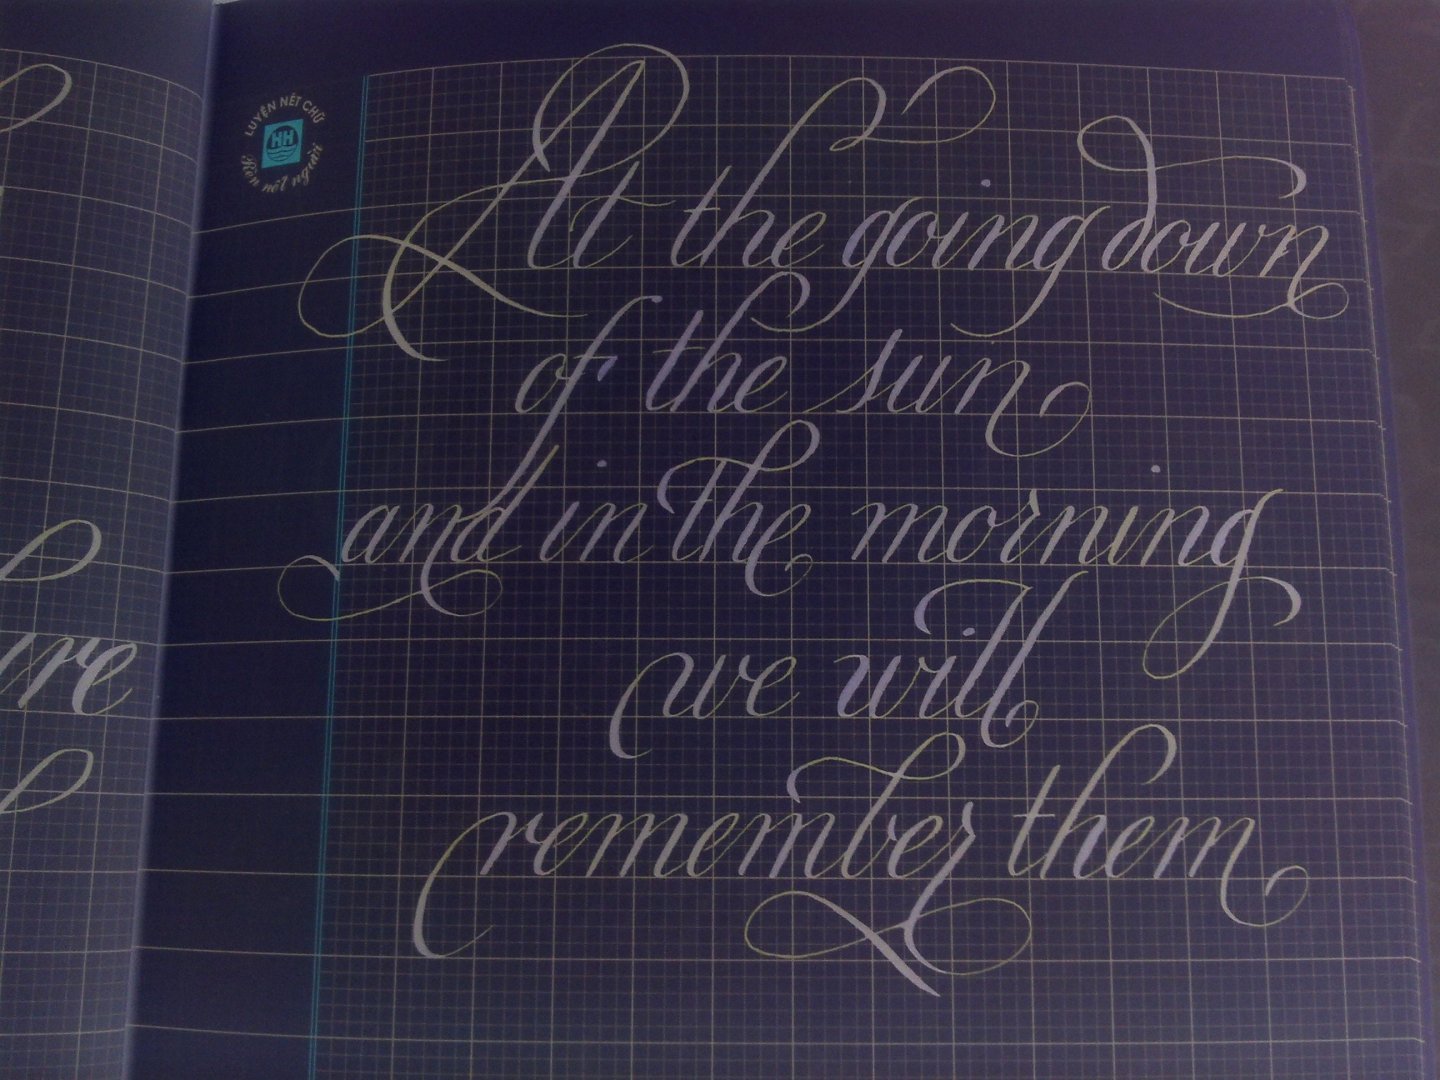 LUYỆN NÉT CHỮ
HH
Rèn nết người
At the going down
of the sun
and in the morning
we will
remember them